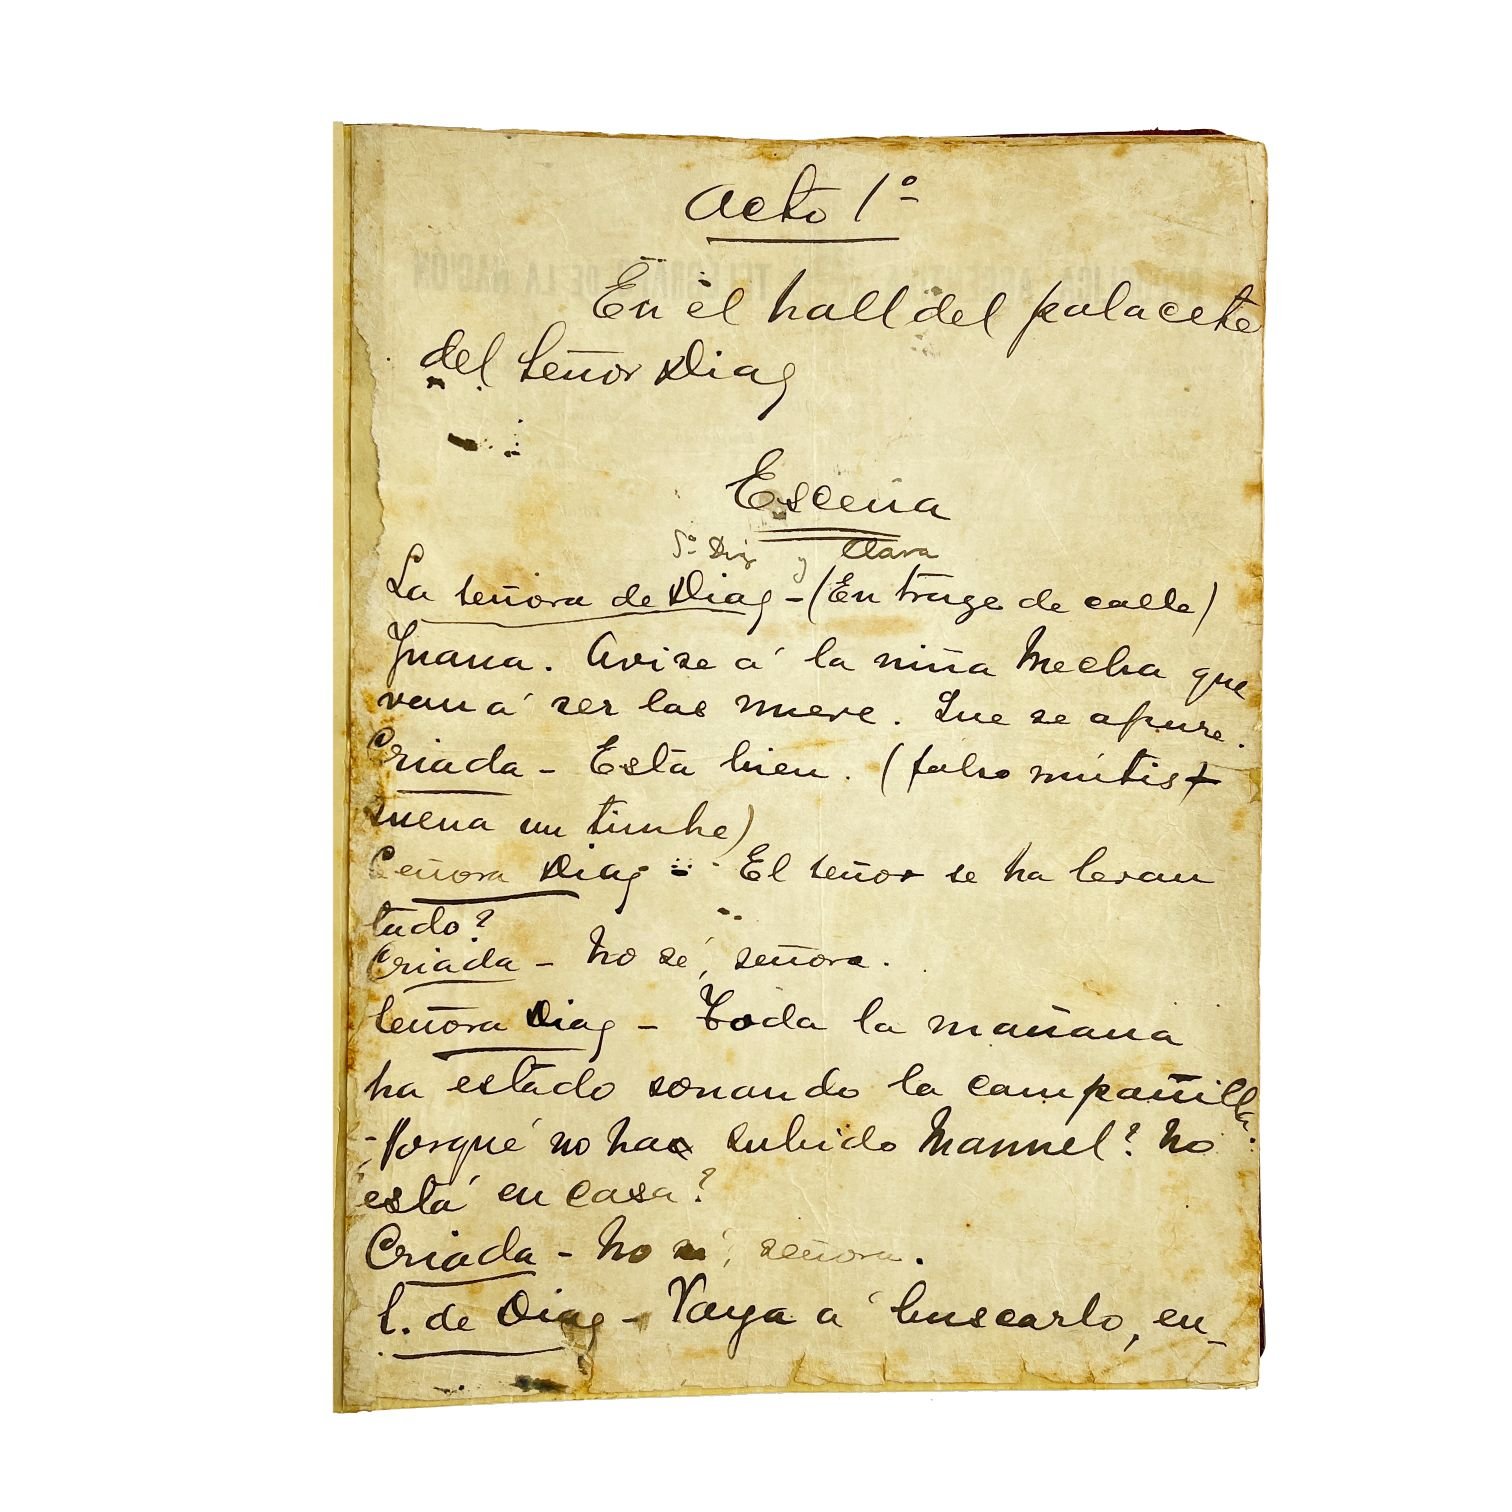 Acto 1º
En el hall del palacete
del señor Diaz
Escena
Sª Diaz y Clara
La señora de Diaz - (En trage de calle)
Juana. Avise á la niña Mecha que
van á ser las nueve. Que se apure.
Criada - Está bien. (falso mútis
suena un timbre)
Señora Diaz - El señor se ha levan
tado?
Criada - No sé, señora.
Señora Diaz - Toda la mañana
ha estado sonando la campanilla.
- ¿Porqué no ha subido Manuel? No
está en casa?
Criada - No sé, señora.
S. de Diaz - Vaya á buscarlo, en-